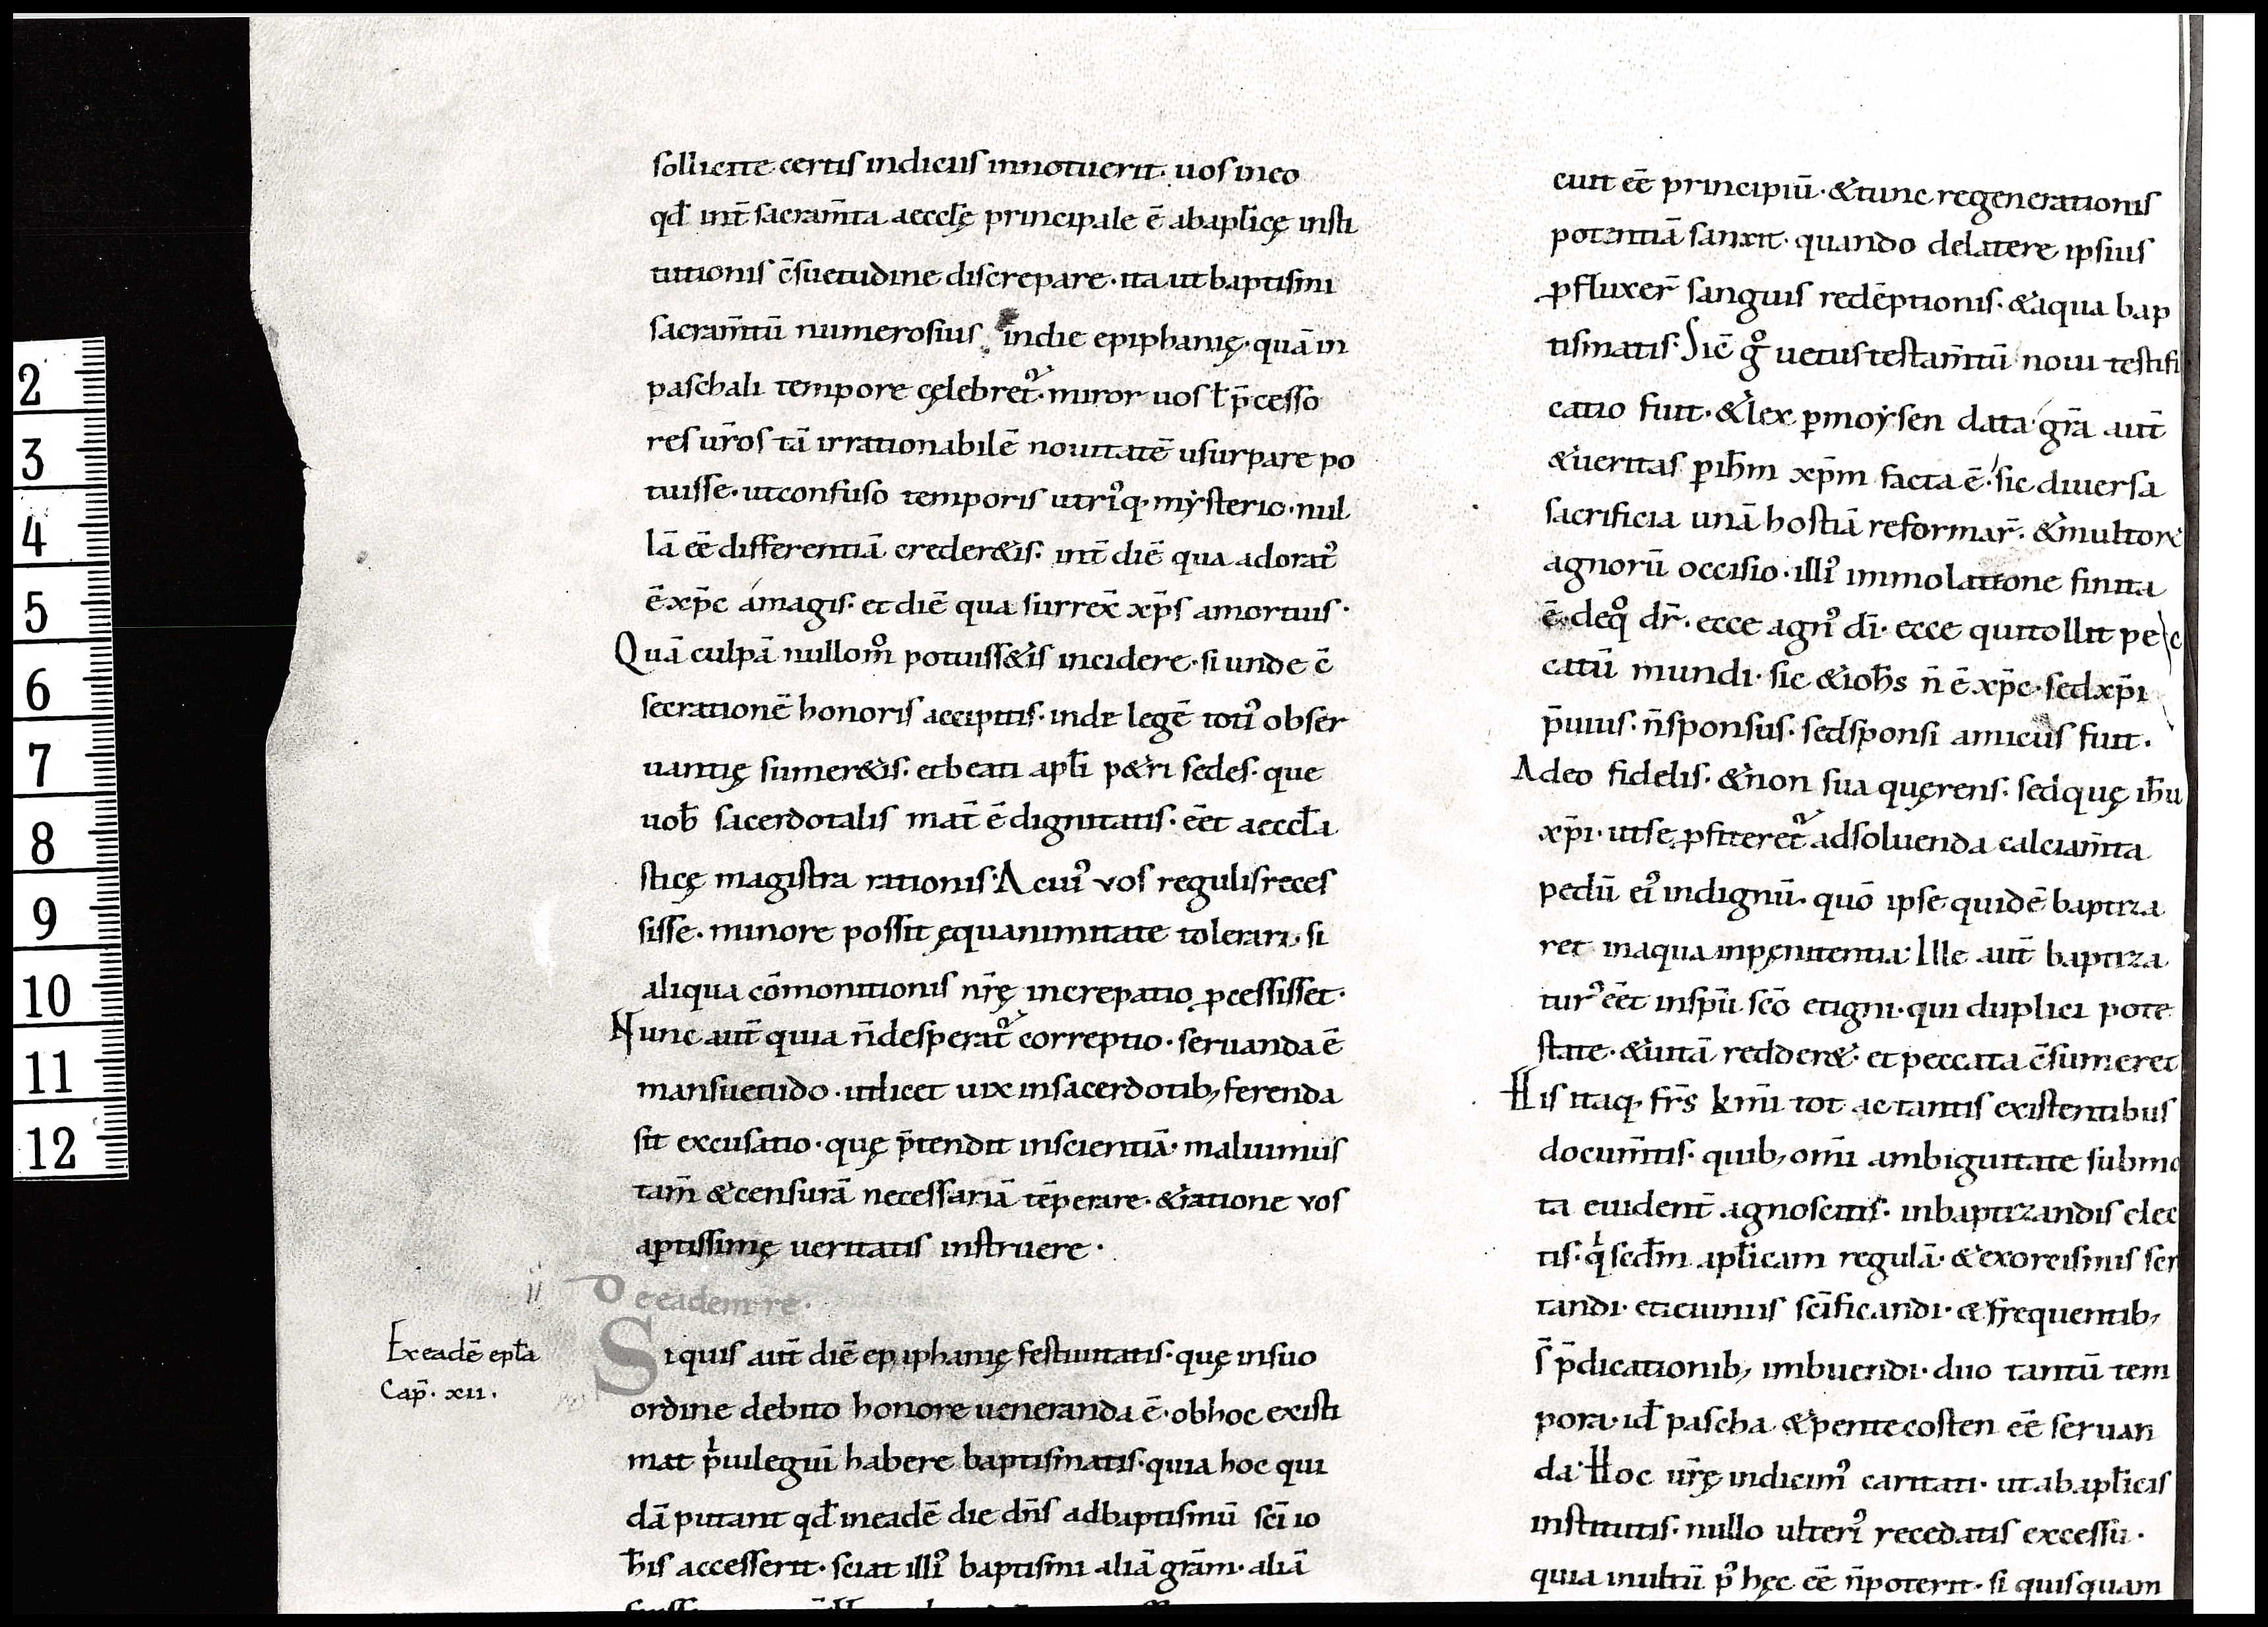 sollicite certis indiciis innotuerit· uos in eo
qđ int̄ sacram̄ta aeccłę principale ē ab apłicę insti
tutionis c̄suetudine discrepare· ita ut baptismi
sacram̄tū numerosius in die epiphanię· quā in
paschali tempore cęlebret᷒· miror uos ł p̄cesso
res ur̄os tā irrationabilē nouitatē usurpare po
tuisse· ut confuso temporis utri᷒q· mẏsterio· nul
lā eē differentiā crederetis· int̄ diē qua adorat᷒
ē xp̄c á magis· et diē qua surrex̄ xp̄s a mortuis·
Quā culpā nullom᷒ potuissetis incidere· si unde c̄
secrationē honoris accipitis· inde legē toti᷒ obser
uantię sumeretis· et beati apłi petri sedes· que
uob̄ sacerdotalis mat̄ ē dignitatis· eēt aeccła
sticę magistra rationis· A cui᷒ vos regulis reces
sisse· minore possit ęquanimitate tolerari· si
aliqua cōmonitionis nr̄ę increpatio ꝓcessisset·
Nunc aut̄ quia n̄ desperat᷒ correptio· seruanda ē
mansuetudo· ut licet uix in sacerdotib; ferenda
sit excusatio· quę p̄tendit inscientiā· maluimus
tam̄ & censurā necessariā tēperare· & ratione vos
aptissimę ueritatis instruere·
ii De eadem re·
Ex eadē epła
Cap̄· xii·
Si quis aut̄ diē epiphanię festiuitatis· quę in suo
ordine debito honore ueneranda ē· ob hoc existi
mat pͥuilegiū habere baptismatis· quia hoc qui
dā putant qđ in eadē die dn̄s ad baptismū scī io
ħis accesserit· sciat illi᷒ baptismi aliā grām· aliā
cuit eē principiū· & tunc regenerationis
potentiā sanxit· quando de latere ipsius
ꝓfluxer̄ sanguis redēptionis· & aqua bap
tismatis· Sic̄ g᷒ uetus testam̄tū noui testifi
catio fuit· & lex ꝑ moẏsen data· grā aut̄
& ueritas ꝑ iħm xp̄m facta ē· sic diuersa
sacrificia unā hostiā reformar̄· & multorū
agnorū occisio· illi᷒ immolatione finita
ē· de q᷒ dr̄· ecce agn᷒ dī· ecce qui tollit pec
catū mundi· sic & ioħs n̄ ē xp̄c· sed xp̄i
p̄uius· n̄ sponsus· sed sponsi amicus fuit·
Adeo fidelis· & non sua quęrens· sed quę iħu
xp̄i· ut se ꝓfiteret᷒ ad soluenda calciam̄ta
pedū ei᷒ indignū· quō ipse quidē baptiza
ret in aqua in pęnitentia· Ille aut̄ baptiza
tur᷒ eēt in spū scō et igni· qui duplici pote
state· & uitā redderet· et peccata c̄sumeret
His itaq· fr̄s kmī tot ac tantis existentibus
docum̄tis· quib; omī ambiguitate submo
ta euident̄ agnoscitis· in baptizandis elec
tis· qͥ scđm apłicam regulā· & exorcismis scr
tandi· et ieiuniis scīficandi· & frequentib;
s̄ p̄dicationib; imbuendi· duo tantū tem
pora· iđ pascha & pentecosten eē seruan
da· Hoc ur̄ę indicim᷒ caritati· ut ab apłicis
institutis· nullo ulteri᷒ recedatis excessu·
quia inultū p᷒ hęc eē n̄ poterit· si quisquam